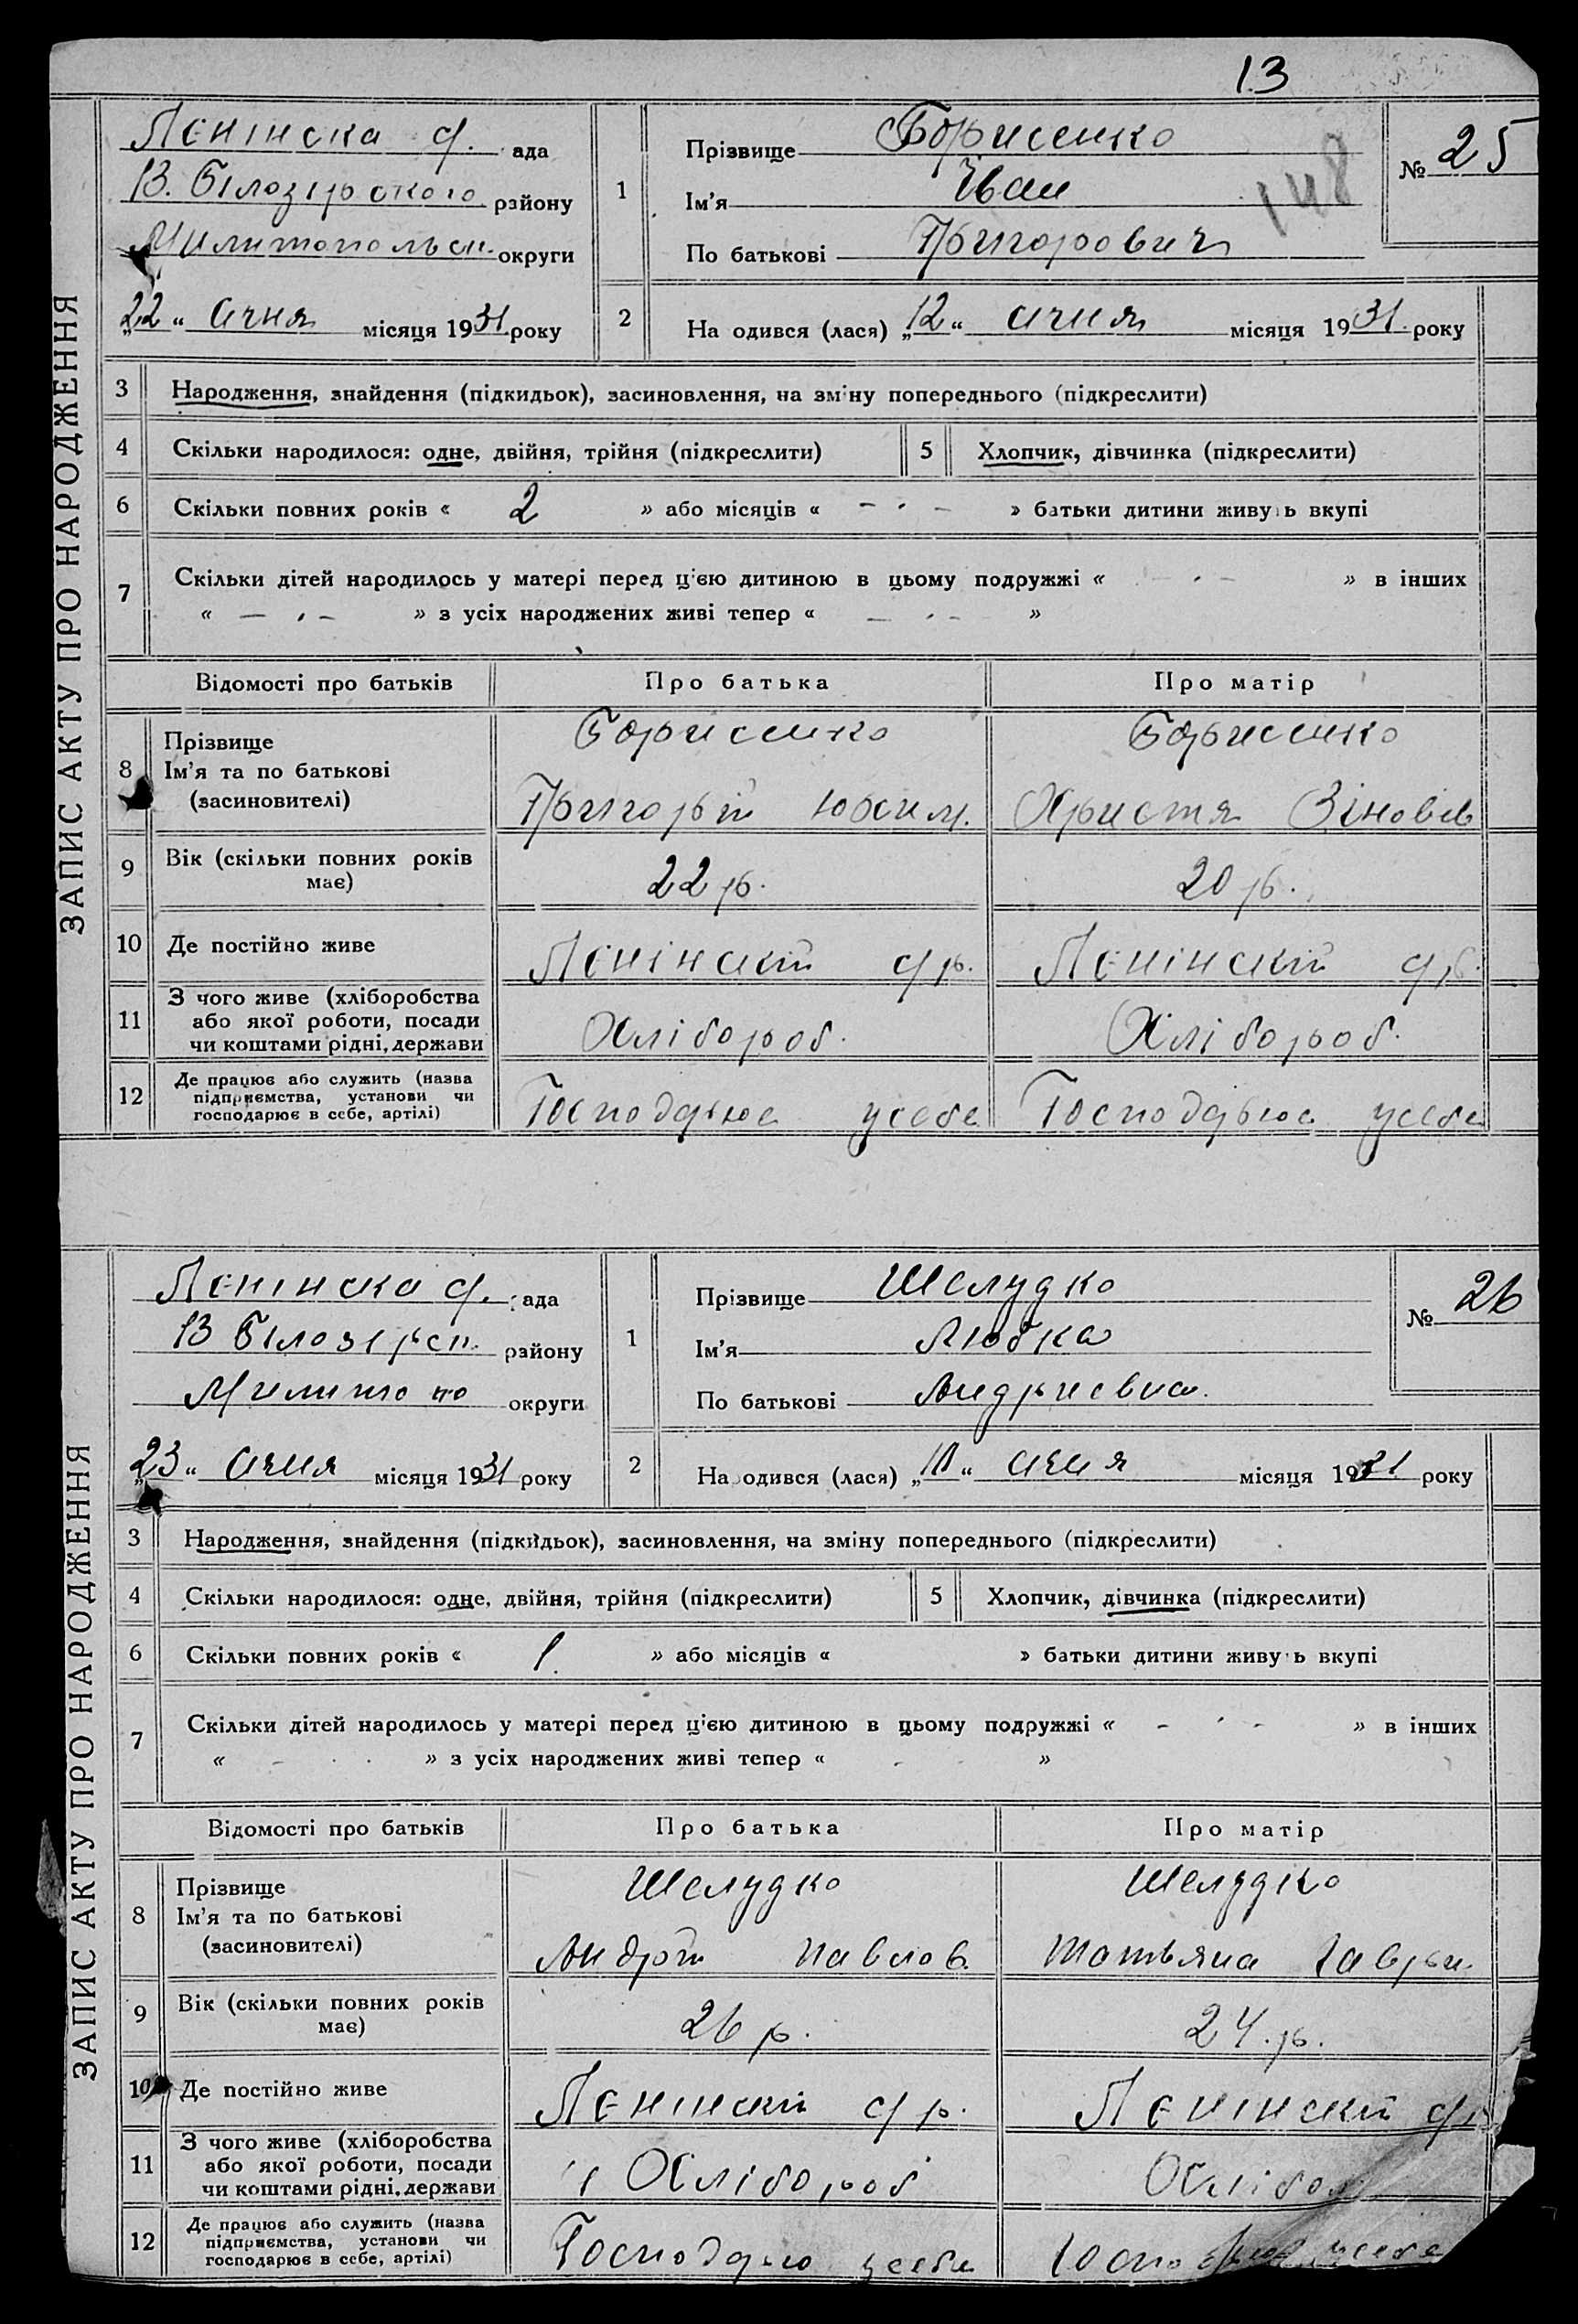 13
Ленінска с/. ада
В. Білозірского району
Милитопольск. округи
„22“ січня місяця 1931 року
1
Прізвище Борисенко
Ім’я Іван
По батькові Григорович
№ 25
148
2
На одився (лася) „12“ січня місяця 1931 року
ЗАПИС АКТУ ПРО НАРОДЖЕННЯ
3 Народження, знайдення (підкидьок), засиновлення, на зміну попереднього (підкреслити)
4 Скільки народилося: одне, двійня, трійня (підкреслити) 5 Хлопчик, дівчинка (підкреслити)
6 Скільки повних років « 2 » або місяців « - · - » батьки дитини живуть вкупі
7 Скільки дітей народилось у матері перед цією дитиною в цьому подружжі « - · - » в інших
« — · – » з усіх народжених живі тепер « — · – »
Відомості про батьків Про батька Про матір
8 Прізвище Борисенко Борисенко
Ім’я та по батькові
(засиновителі) Григорій Юхим. Христя Зіновів
9 Вік (скільки повних років
має) 22 р. 20 р.
10 Де постійно живе Ленінскій с/р. Ленінскій с/р.
11 З чого живе (хліборобства
або якої роботи, посади Хлібороб. Хлібороб.
чи коштами рідні, держави
12 Де працює або служить (назва
підприємства, установи чи
господарює в себе, артілі) Господарює усебе Господарює усебе
Ленінска с/. ада
В Білозірск. району
Милитопо округи
„23“ січня місяця 1931 року
1
Прізвище Шелудко
Ім’я Любка
По батькові Андриєвна.
№ 26
2
На одився (лася) „10“ січня місяця 1931 року
ЗАПИС АКТУ ПРО НАРОДЖЕННЯ
3 Народження, знайдення (підкидьок), засиновлення, на зміну попереднього (підкреслити)
4 Скільки народилося: одне, двійня, трійня (підкреслити) 5 Хлопчик, дівчинка (підкреслити)
6 Скільки повних років « 1. » або місяців « » батьки дитини живуть вкупі
7 Скільки дітей народилось у матері перед цією дитиною в цьому подружжі « - · - » в інших
« - · · » з усіх народжених живі тепер « - »
Відомості про батьків Про батька Про матір
8 Прізвище Шелудко Шелудко
Ім’я та по батькові
(засиновителі) Андрій Павлов. Татьяна Гаври.
9 Вік (скільки повних років
має) 26 р. 24 р.
10 Де постійно живе Ленінскій с/р. Ленінскій с/р
11 З чого живе (хліборобства
або якої роботи, посади Хлібороб Хлібо
чи коштами рідні, держави
12 Де працює або служить (назва
підприємства, установи чи
господарює в себе, артілі) Господарю усебе усебе